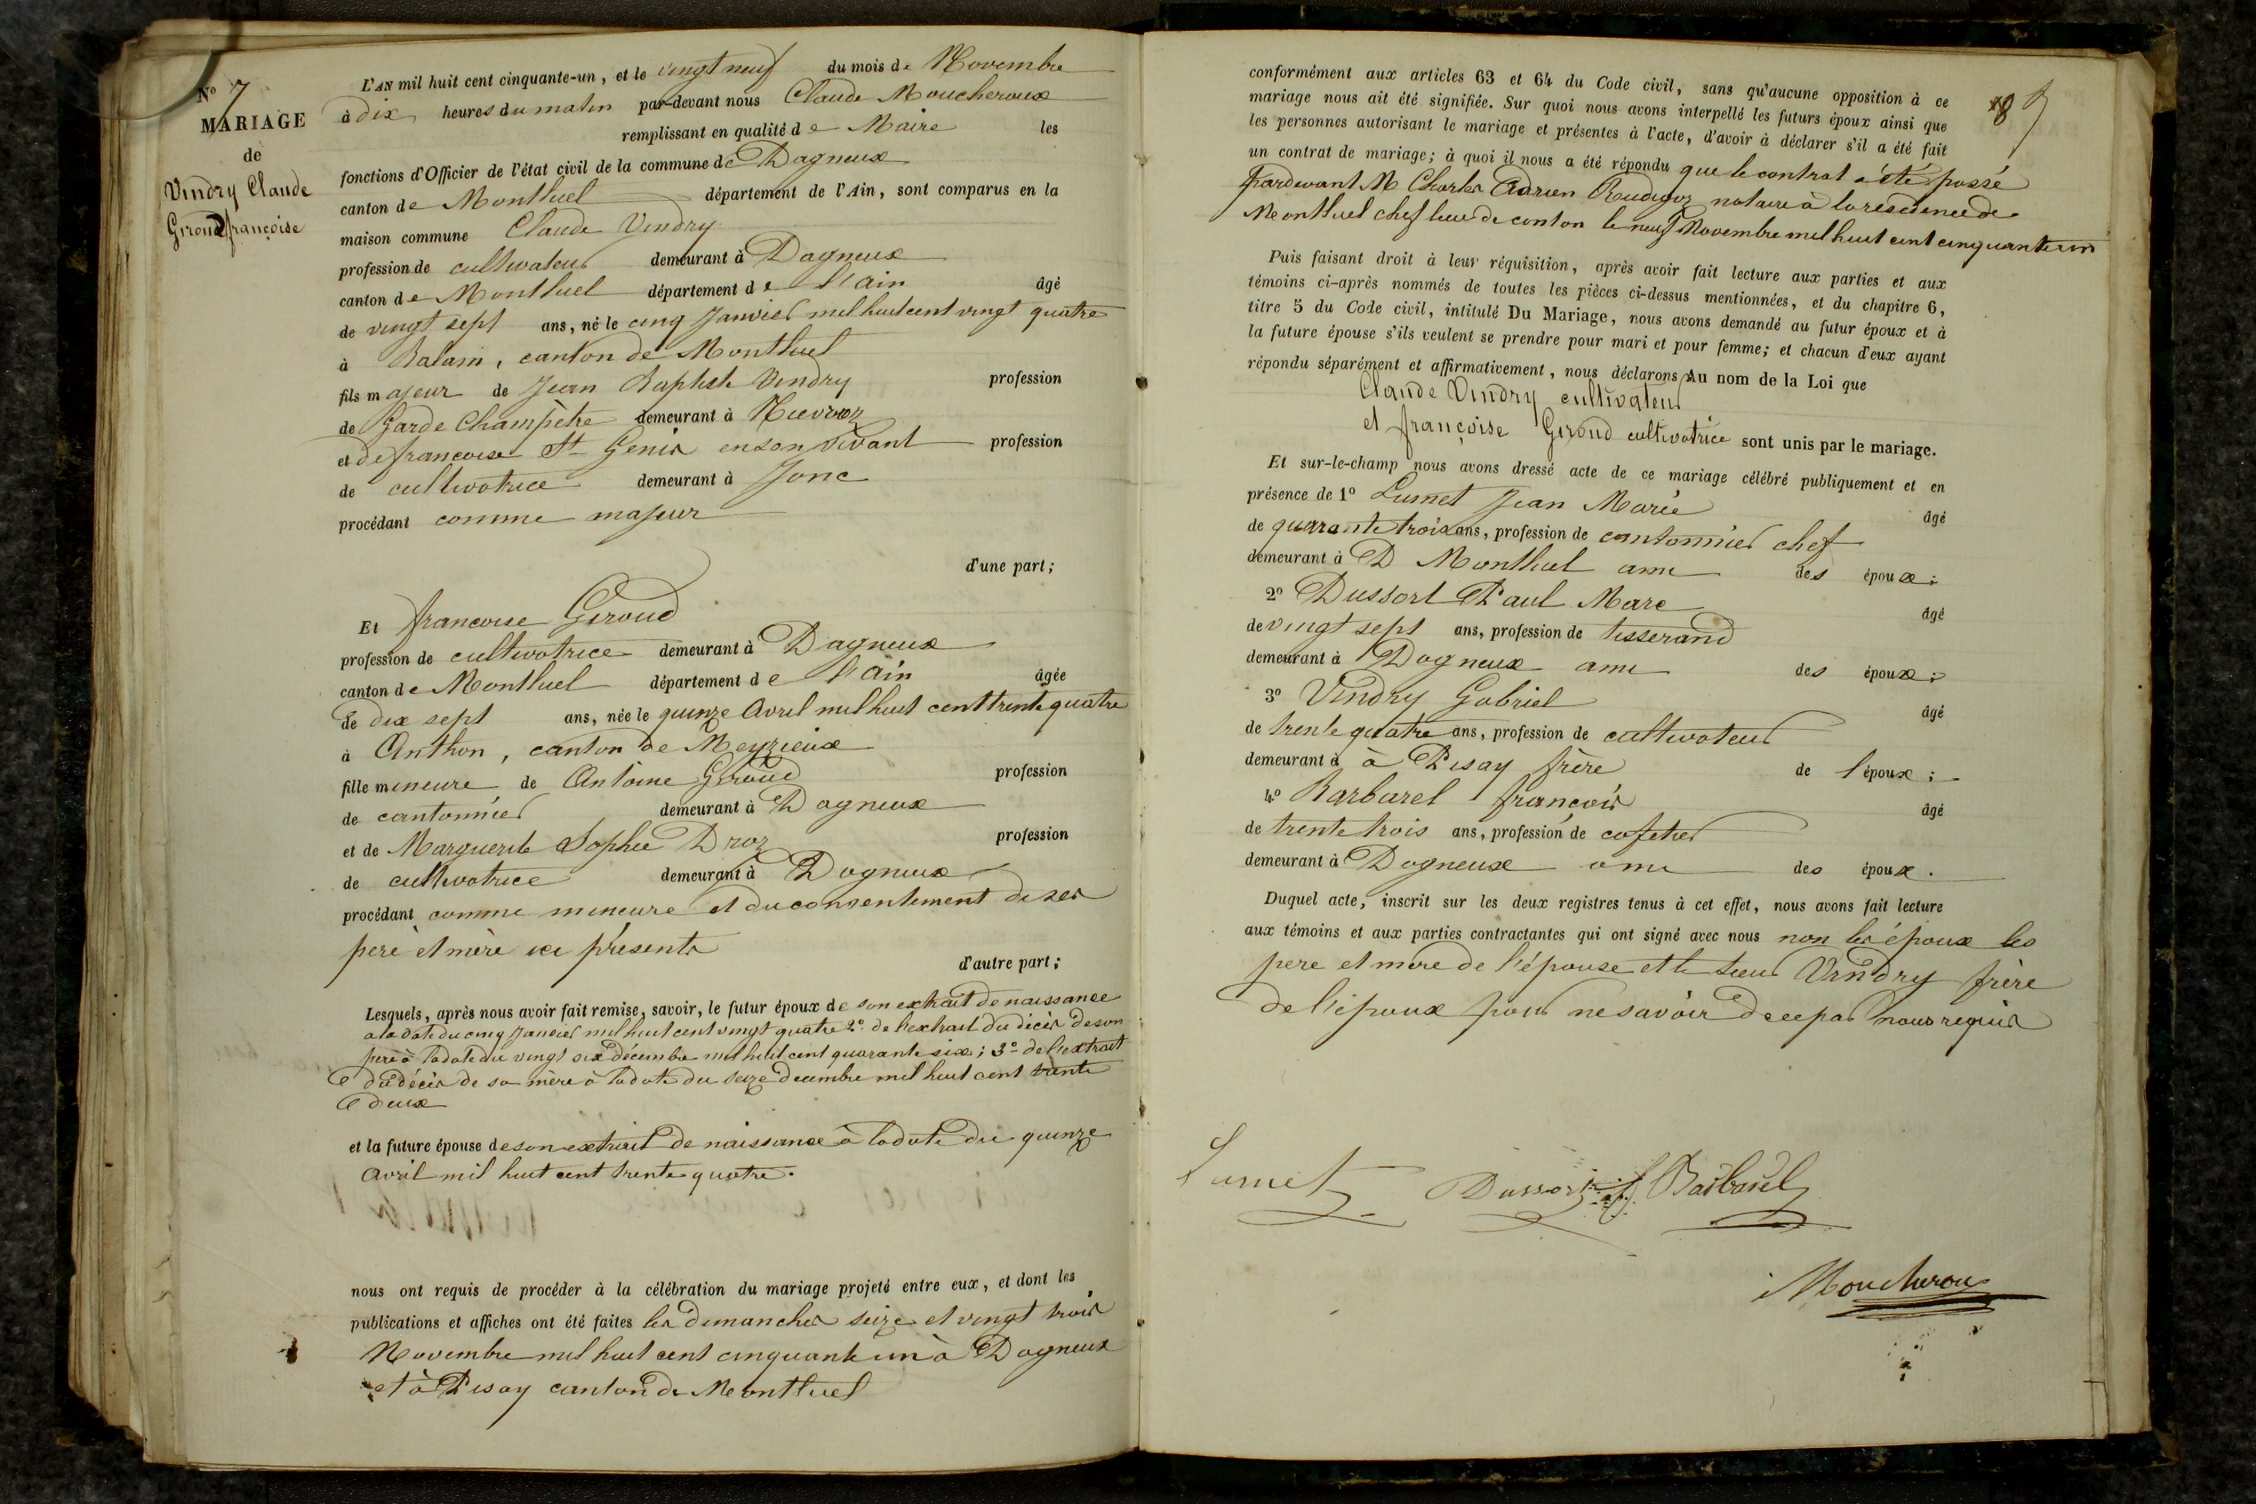 N° 7
MARIAGE
de
Vindry Claude
Giroud françoise
L'AN mil huit cent cinquante-un, et le vingt neuf du mois de Novembre
à dix heures du matin par-devant nous Claude Moucheroux
remplissant en qualité de Maire les
fonctions d'Officier de l'état civil de la commune de Dagneux
canton de Montluel département de l'Ain, sont comparus en la
maison commune Claude Vindry
profession de cultivateur demeurant à Dagneux
canton de Montluel département de l'ain âgé
de vingt sept ans, né le cinq Janvier mil huit cent vingt quatre
à Balain, canton de Montluel
fils majeur de Jean Baptiste Vindry profession
de Garde Champètre demeurant à Nievroz
et de francoise St Genis en son vivant profession
de cultivatrice demeurant à Jonc
procédant comme majeur
d'une part;
Et francoise Giroud
profession de cultivatrice demeurant à Dagneux
canton de Montluel département de l'ain âgée
de dix sept ans, née le quinze Avril mil huit cent trente quatre
à Anthon, canton de Meyzieux
fille mineure de Antoine Giroud profession
de cantonnier demeurant à Dagneux
et de Marguerite Sophie Droz profession
de cultivatrice demeurant à Dagneux
procédant comme mineure et du consentement de ses
père et mère ici présents
d'autre part;
Lesquels, après nous avoir fait remise, savoir, le futur époux de son extrait de naissance
a la date du cinq Janvier mil huit cent vingt quatre 2° de l'extrait du décès de son
père à la date du vingt six décembre mil huit cent quarante six; 3° de l'extrait
du décès de sa mère à la date du seize decembre mil huit cent trente
deux
et la future épouse de son extrait de naissance à la date du quinze
avril mil huit cent trente quatre.
nous ont requis de procéder à la célébration du mariage projeté entre eux, et dont les
publications et affiches ont été faites les dimanches seize et vingt trois
Novembre mil huit cent cinquante un à Dagneux
et à Pisay canton de Montluel
conformément aux articles 63 et 64 du Code civil, sans qu'aucune opposition à ce
mariage nous ait été signifiée. Sur quoi nous avons interpellé les futurs époux ainsi que
les personnes autorisant le mariage et présentes à l'acte, d'avoir à déclarer s'il a été fait
un contrat de mariage; à quoi il nous a été répondu que le contrat a été passé
pardevant M Charles Adrien Rudigoz notaire à la résidence de
Montluel chef lieu de canton le neuf Novembre mil huit cent cinquante un
Puis faisant droit à leur réquisition, après avoir fait lecture aux parties et aux
témoins ci-après nommés de toutes les pièces ci-dessus mentionnées, et du chapitre 6,
titre 5 du Code civil, intitulé Du Mariage, nous avons demandé au futur époux et à
la future épouse s'ils veulent se prendre pour mari et pour femme; et chacun d'eux ayant
répondu séparément et affirmativement, nous déclarons Au nom de la Loi que
Claude Vindry cultivateur
et françoise Giroud cultivatrice sont unis par le mariage.
Et sur-le-champ nous avons dressé acte de ce mariage célébré publiquement et en
présence de 1° Lumet Jean Marie âgé
de quarante trois ans, profession de cantonnier chef
demeurant à D Montluel ami des époux;
2° Dussort Paul Marc âgé
de vingt sept ans, profession de tisserand
demeurant à Dagneux ami des époux;
3° Vindry Gabriel âgé
de trente quatre ans, profession de cultivateur
demeurant à à Pisay frère de l'époux;
4° Barbarel françois âgé
de trente trois ans, profession de cafetier
demeurant à Dagneux ami des époux.
Duquel acte, inscrit sur les deux registres tenus à cet effet, nous avons fait lecture
aux témoins et aux parties contractantes qui ont signé avec nous non les époux les
pere et mere de l'épouse et le sieur Vindry frère
de l'époux pour ne savoir de ce par nous requis
Lumet Dussort Barbarel
Moucheroux